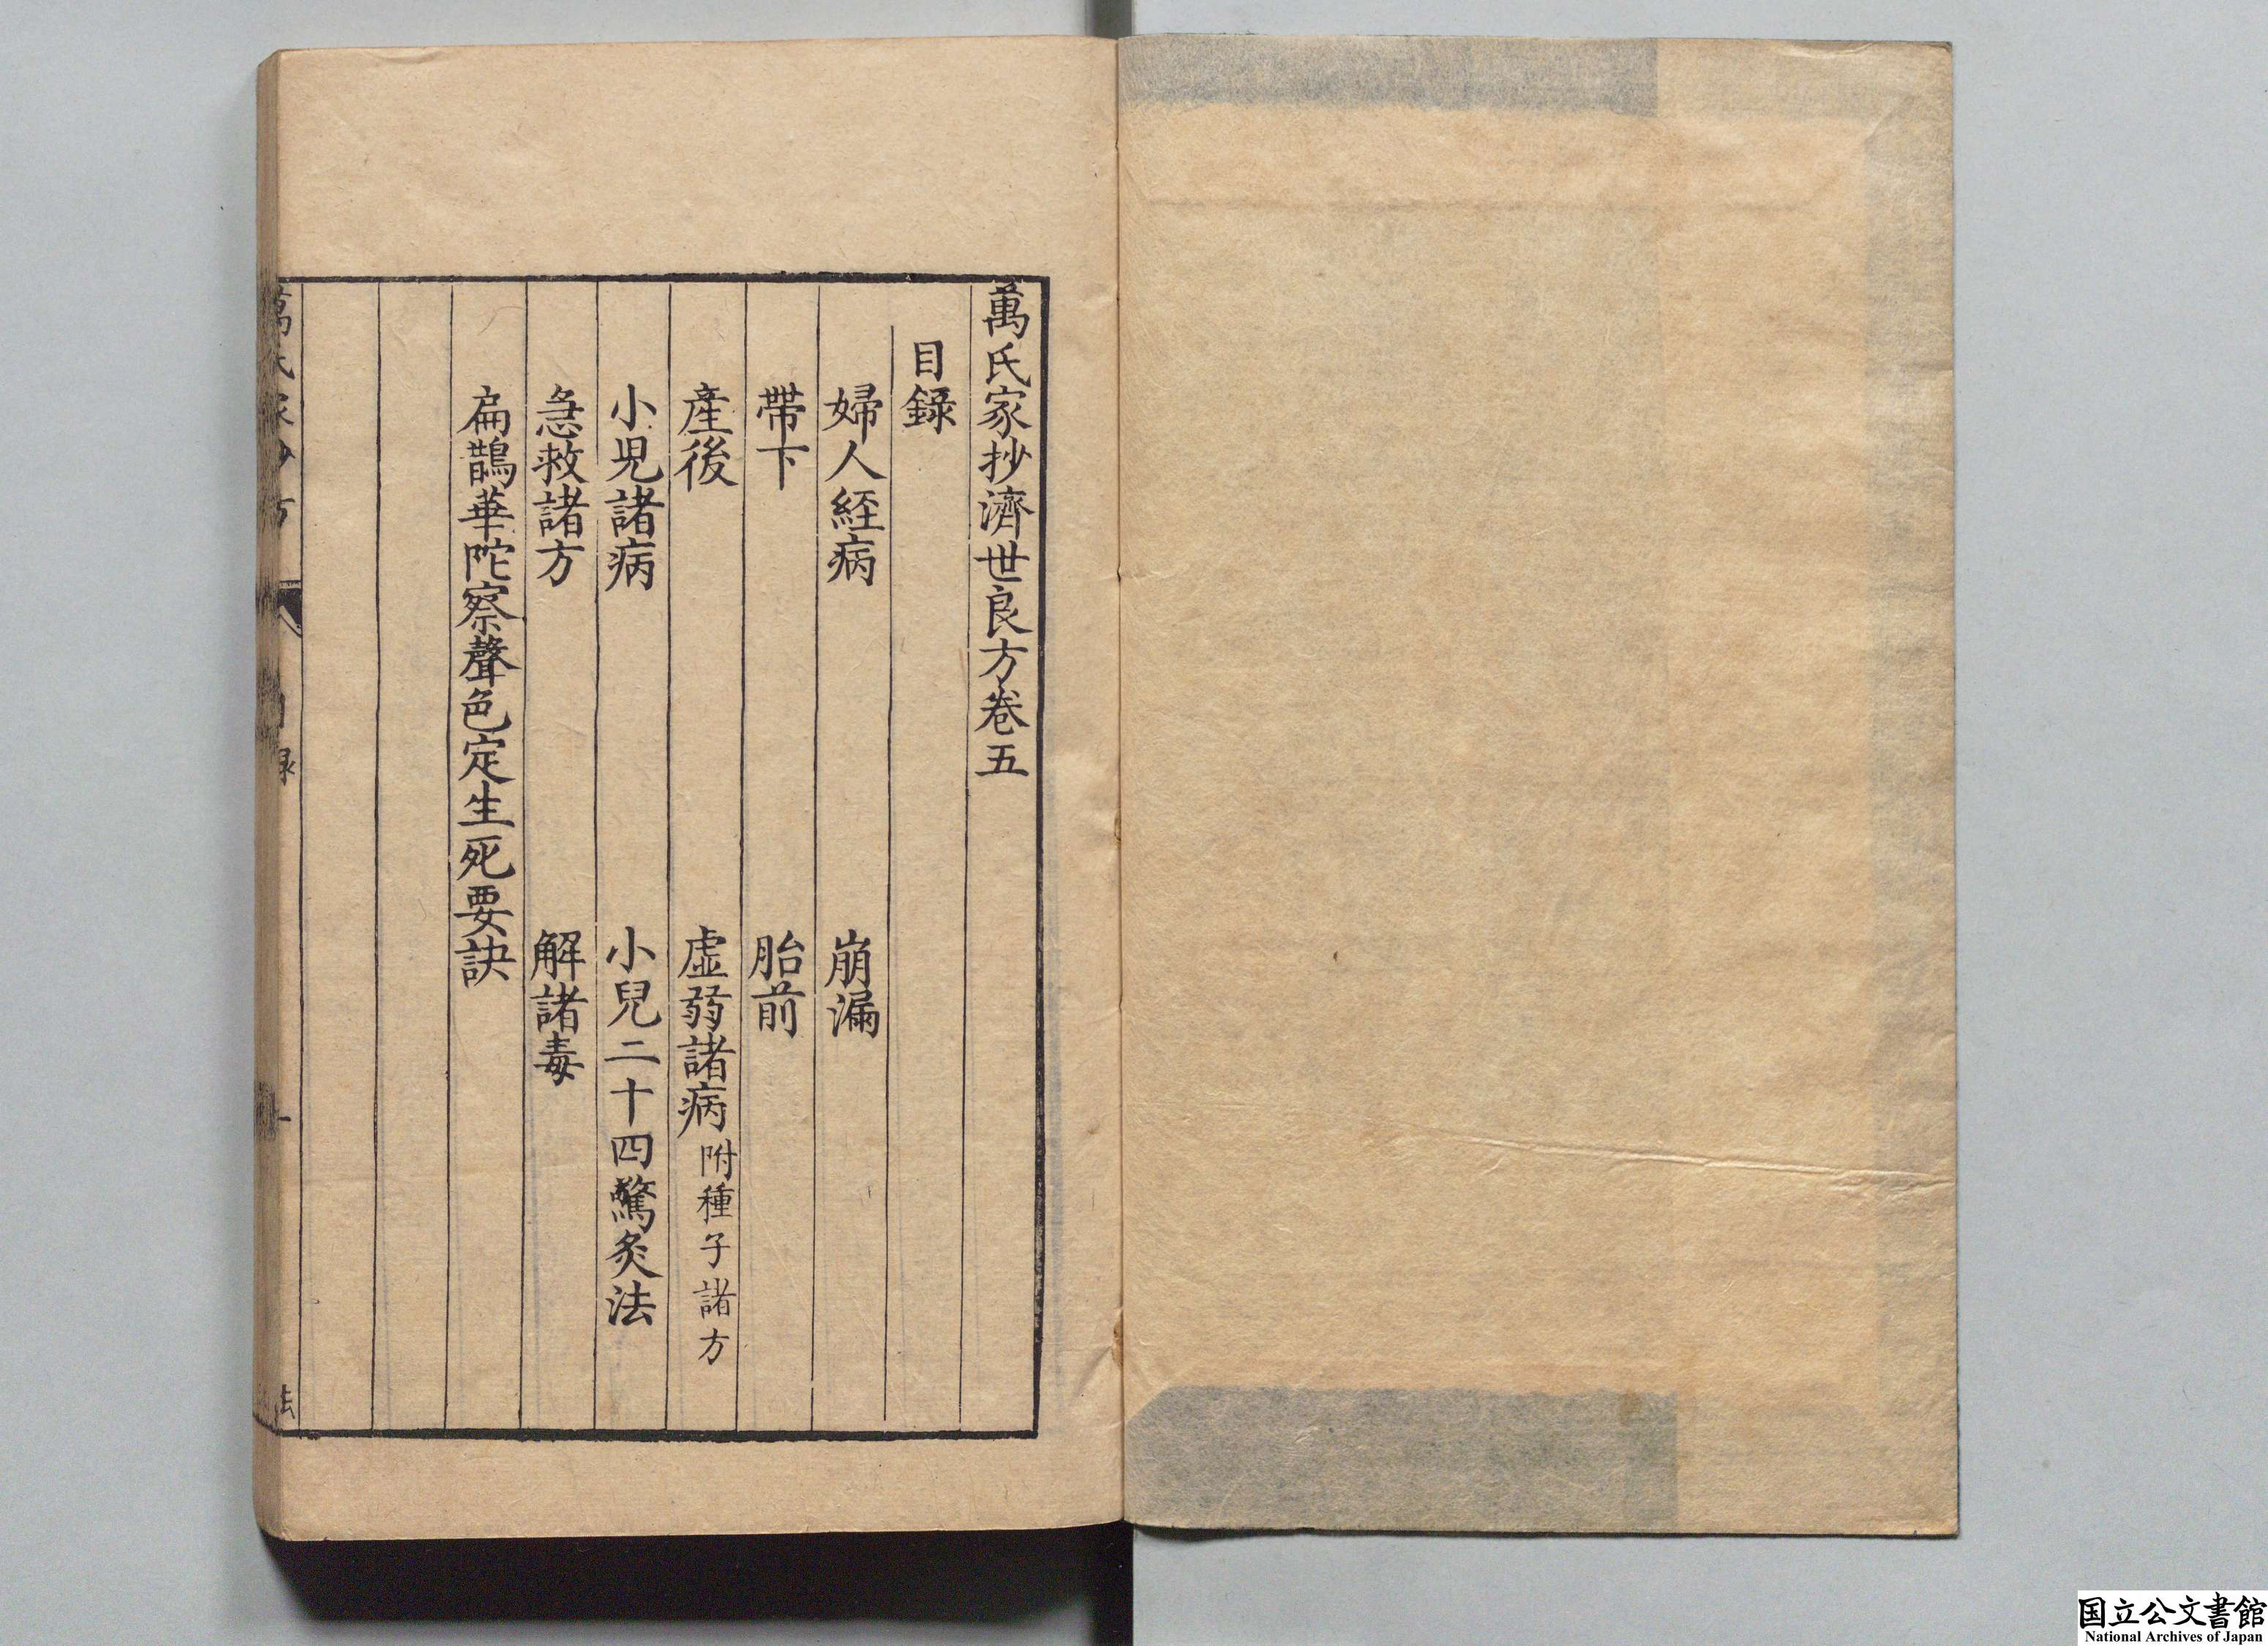 萬氏家抄濟世良方卷五
目錄
婦人経病　崩漏
帶下　胎前
產後　虛弱諸病 附種子諸方
小児諸病　小兒二十四驚灸法
急救諸方　解諸毒
扁鵲華陀察聲色定生死要訣
国立公文書館
National Archives of Japan